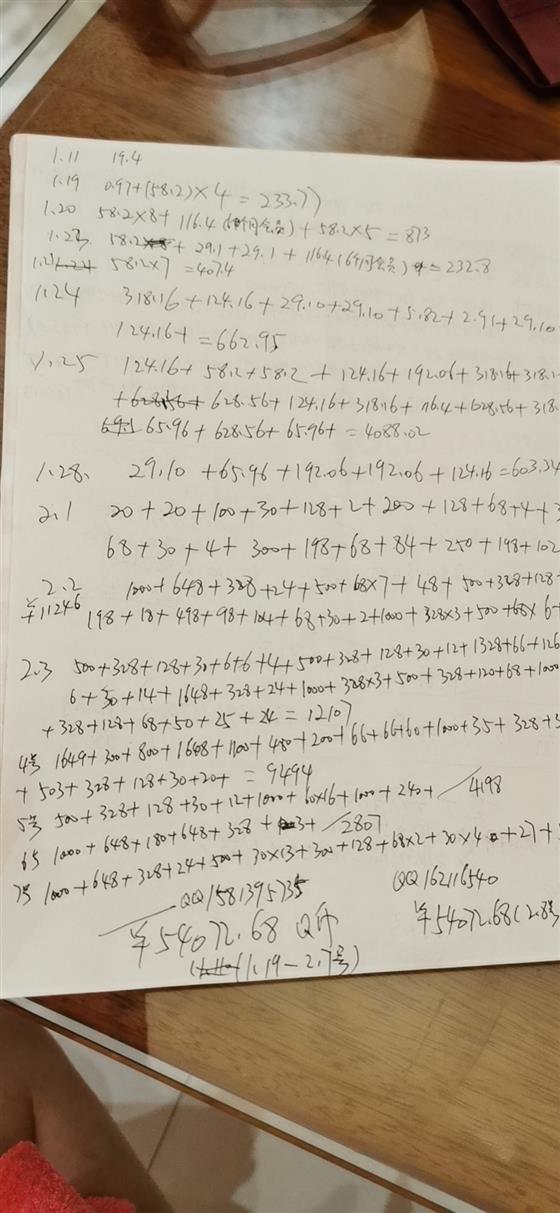 1.11 19.4
1.19 0.97+(58.2)×4=233.77
1.20 58.2×8+116.4(个月会员)+58.2×5=873
1.23 58.2+29.1+29.1+116.4(6个月会员)=232.8
1.21 58.2×7=407.4
1.24 318.16+124.16+29.10+29.10+5.82+2.91+29.10
124.16+=662.95
1.25 124.16+58.2+58.2+124.16+192.06+318.16+318.1
+628.56+124.16+318.16+116.4+628.56+318.
65.96+628.56+65.96+=4088.02
1.28. 29.10+65.96+192.06+192.06+124.16=603.34
2.1 20+20+100+30+128+2+200+128+68+4+3
68+30+4+300+198+68+84+250+198+102
2.2 1000+648+328+24+500+68×7+48+500+328+128+
¥11246 198+18+498+98+104+68+30+2+1000+328×3+500+68×6+
2.3 500+328+128+30+6+6+4+500+328+128+30+12+1328+66+126
6+30+14+1648+328+24+1000+328×3+500+328+120+68+1000
+328+128+68+50+25+24=12107
4号 1649+300+800+1648+1100+480+200+66+66+60+1000+35+328+3
+503+328+128+30+20+=9494
5号 500+328+128+30+12+1000+60×16+1000+240+/4198
6号 1000+648+180+648+328+3+/2807
7号 1000+648+328+24+500+30×13+300+128+68×2+30×4+27+
QQ1581395735 QQ162116540
¥54072.68 ¥54072.68(2.8号
(1.19-2.7号)